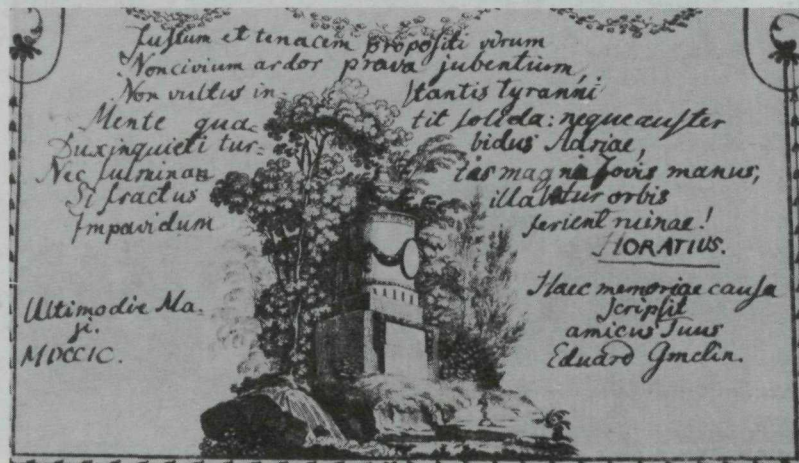 Justum et tenacem propositi virum
Non civium ardor prava jubentium,
Non vultus in- stantis tyranni
Mente qua- tit solida: neque auster
Dux inquieti tur- bidus Adriae,
Nec fulminan tis magna Jovis manus;
Si fractus illabatur orbis
Impavidum ferient ruinae!
HORATIUS.
Ultimo die Ma-
ji.
MDCCIC.
Haec memoriae causa
scripsit
amicus Tuus
Eduard Gmelin.